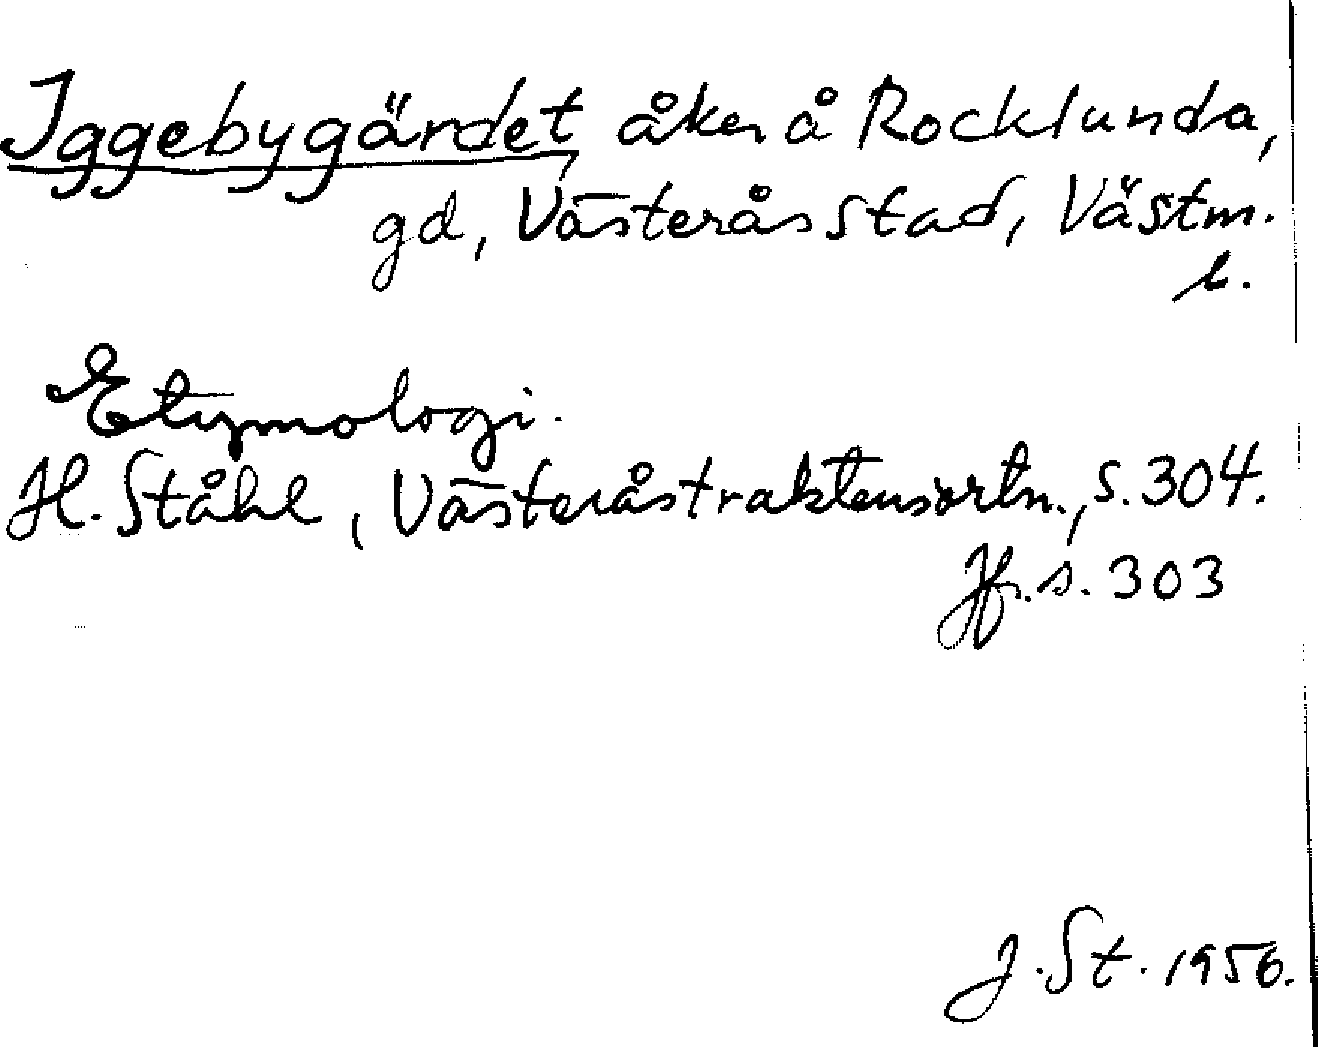 Iggebygärdet, åker å Rocklunda,
gd, Västerås stad, Västm.
l.
Etymologi.
H. Ståhl, Västeråstraktensortn., s. 304.
Jfr. s. 303
J. St. 1956.